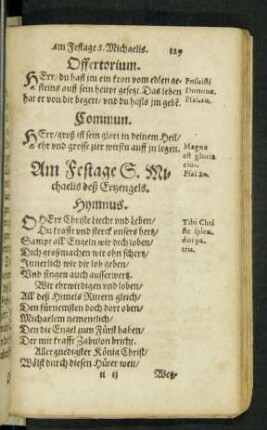 am Festage s. Michaelis. 119
Offertorium.
HErr/ du hast jm ein kron vom edlen ge-
steins auff sein heupt gesetzt. Das leben
hat er von dir begert/ vnd du hasts jm gebē.
Posuisti
Domine.
Psal.20.
Commun.
HErr/ groß ist sein glori in deinem Heil/
ehr vnd grosse zier wirstu auff jn legen.
Magna
est gloria
eius.
Psal.20.
Am Festage S. Mi-
chaelis deß Ertzengels.
Hymnus.
OHErr Christe liecht vnd leben/
Du krafft vnd sterck vnsers hertz/
Sampt all' Engeln wir dich loben/
Dich großmachen wir ohn schertz/
Innerlich wir dir lob geben/
Vnd singen auch ausserwertz.
Tibi Chri
ste splen
dor pa-
tris.
Wir ehrwirdigen vnd loben/
All' deß Himels Rittern gleich/
Den fürnemsten doch dort oben/
Michaelem nemenlich/
Den die Engel zum Fürst haben/
Der mit krafft Zabulon bricht.
Allergnedigster König Christ/
Wölst durch diesen Hüter weit/
u ij Wes-